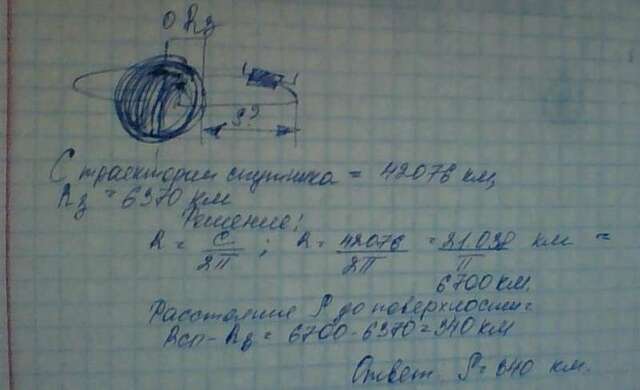 O Rз
S?
C траектории спутника = 42076 км,
Rз = 6370 км
Решение:
R = C/2П ; R = 42076/2П = 21038/П км =
6700 км.
Расстояние S до поверхности =
Rсп - Rз = 6700 - 6370 = 340 км
Ответ S = 340 км.